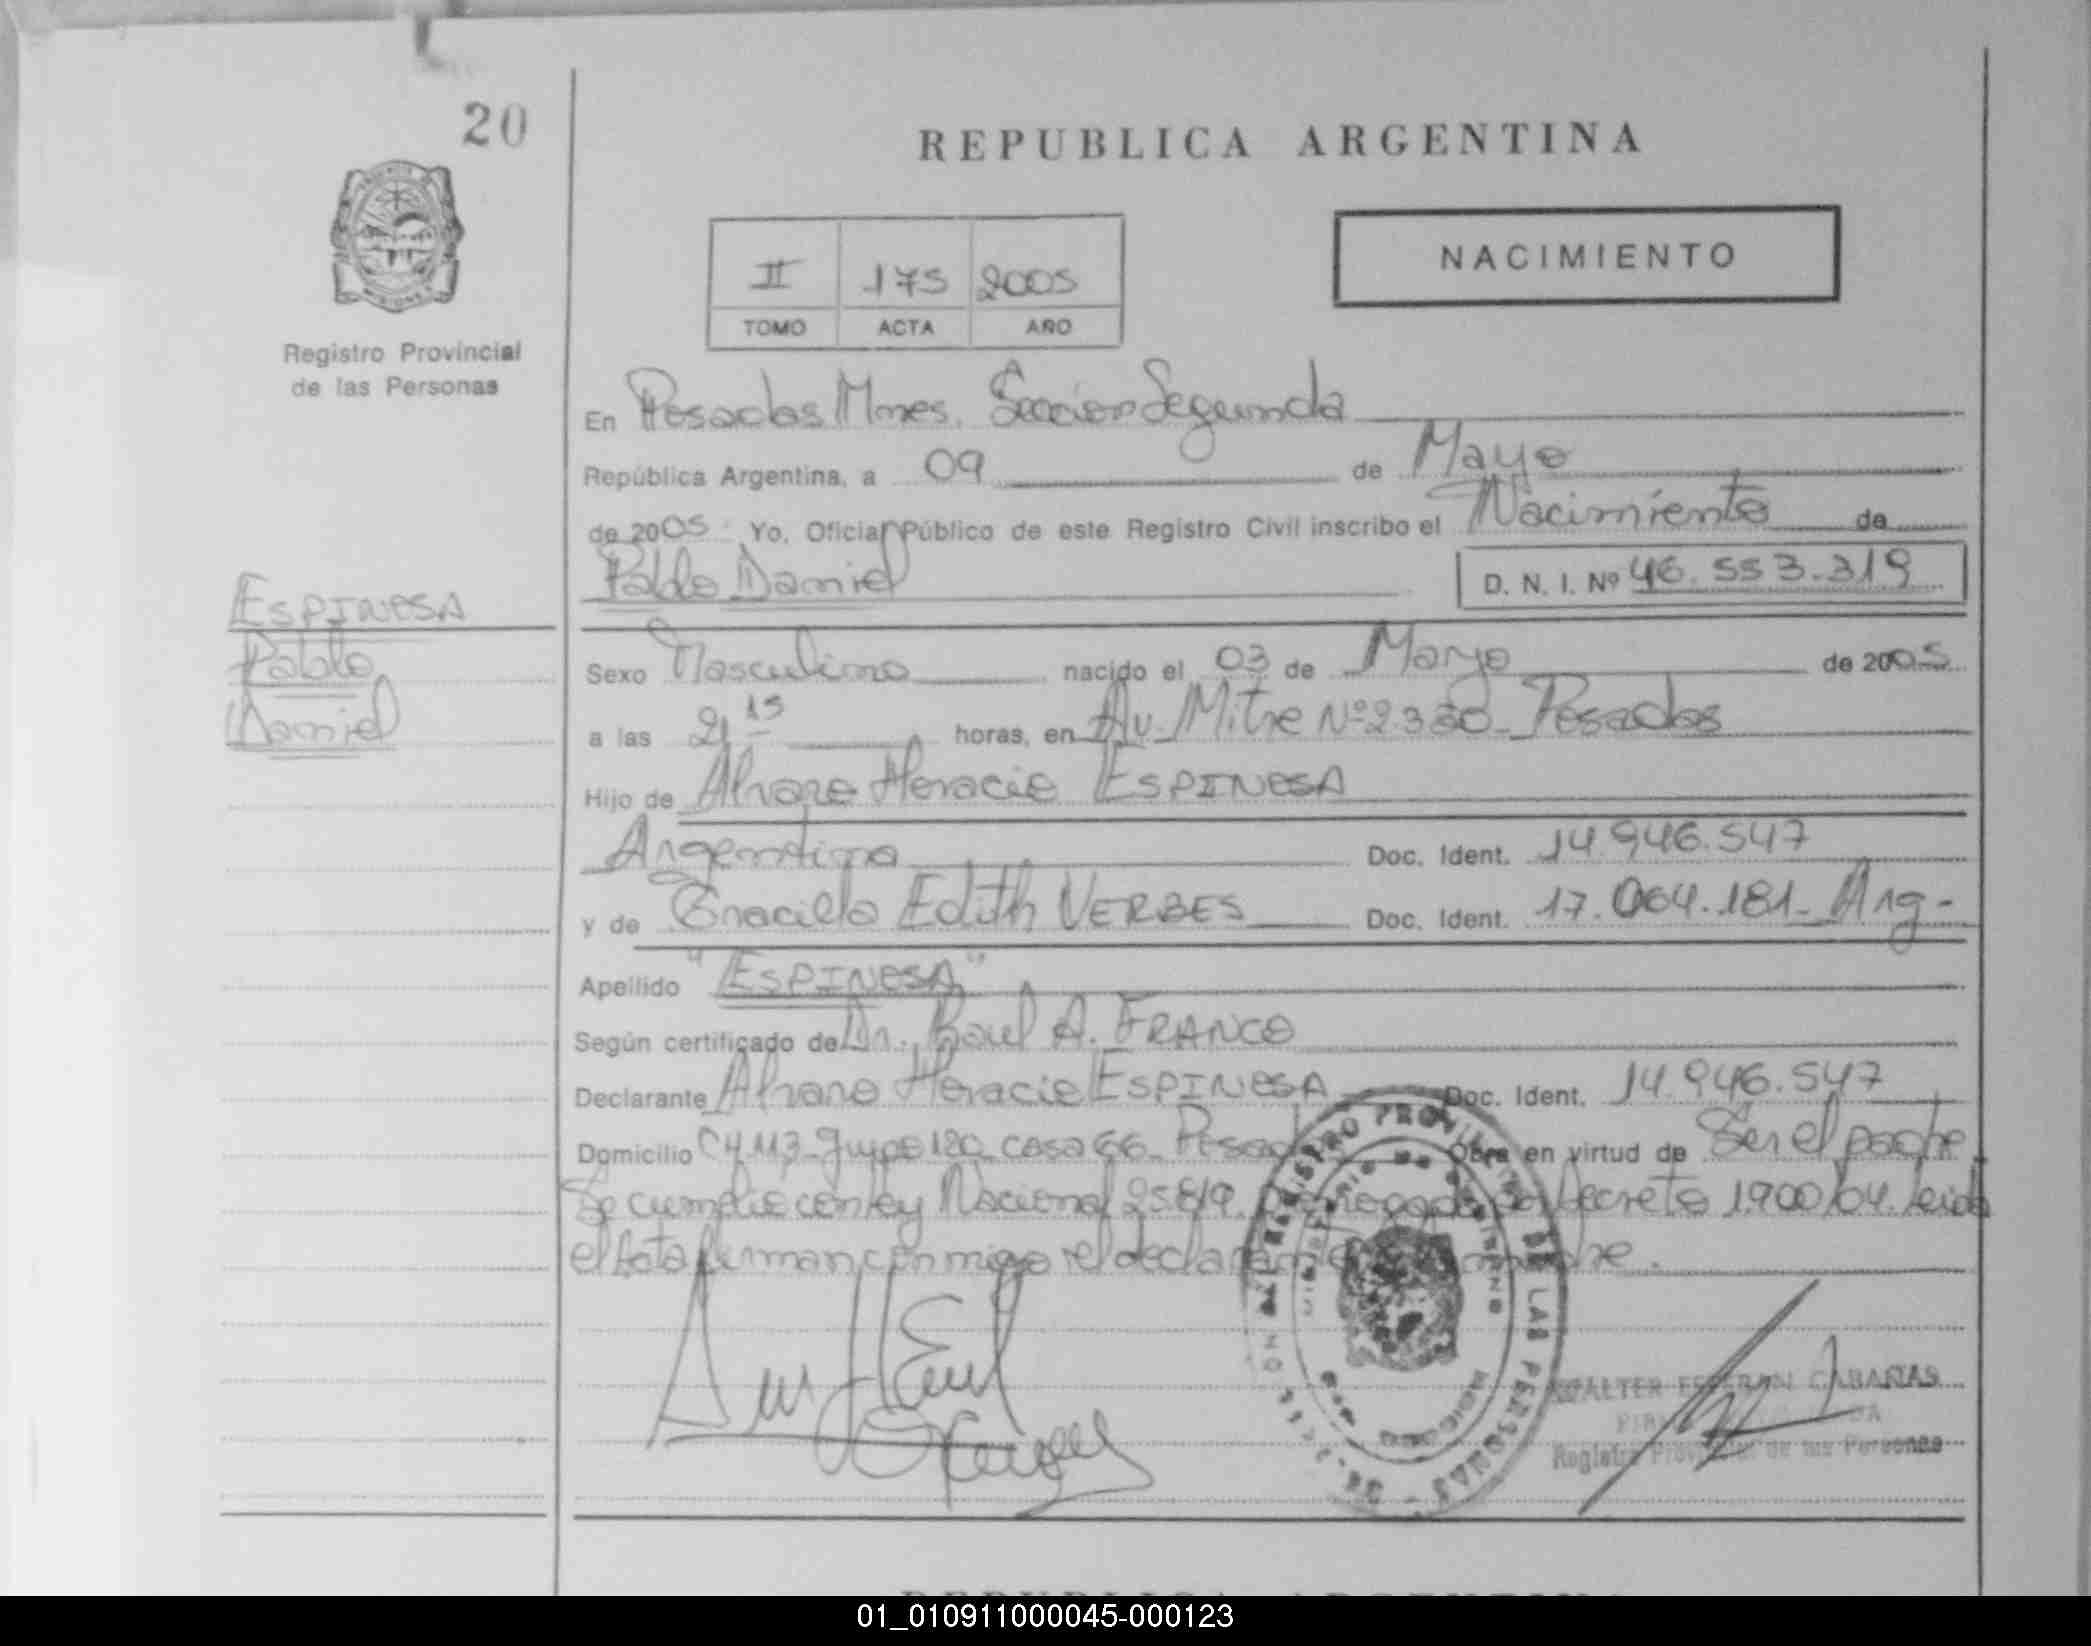 20
REPUBLICA ARGENTINA
NACIMIENTO
II 175 2005
TOMO ACTA AÑO
Registro Provincial
de las Personas
En Posadas Mnes. Sección Segunda
República Argentina, a 09 de Mayo
de 2005 Yo, Oficial Público de este Registro Civil inscribo el Nacimiento de
Pablo Daniel
D. N. I. Nº 46.553.319
ESPINOSA
Pablo
Daniel
Sexo Masculino nacido el 03 de Mayo de 2005
a las 21 15 horas, en Av. Mitre Nº 2330 - Posadas
Hijo de Alvaro Horacio ESPINOSA
Argentina Doc. Ident. 14.946.547
y de Graciela Edith VERBES Doc. Ident. 17.064.181 - Arg -
Apellido "ESPINOSA"
Según certificado de Dr. Raul A. FRANCO
Declarante Alvaro Horacio ESPINOSA Doc. Ident. 14.946.547
Domicilio CH 113 - grupo 120 casa 66 - Obra en virtud de Ser el padre
Se cumple con ley Nacional 25.819. Decreto 1.900/04. leida
el Acta firman conmigo el
REGISTRO PROVINCIAL DE LAS PERSONAS
WALTER ESTEBAN CABAÑAS
Registro Provincial de las Personas
01_010911000045-000123